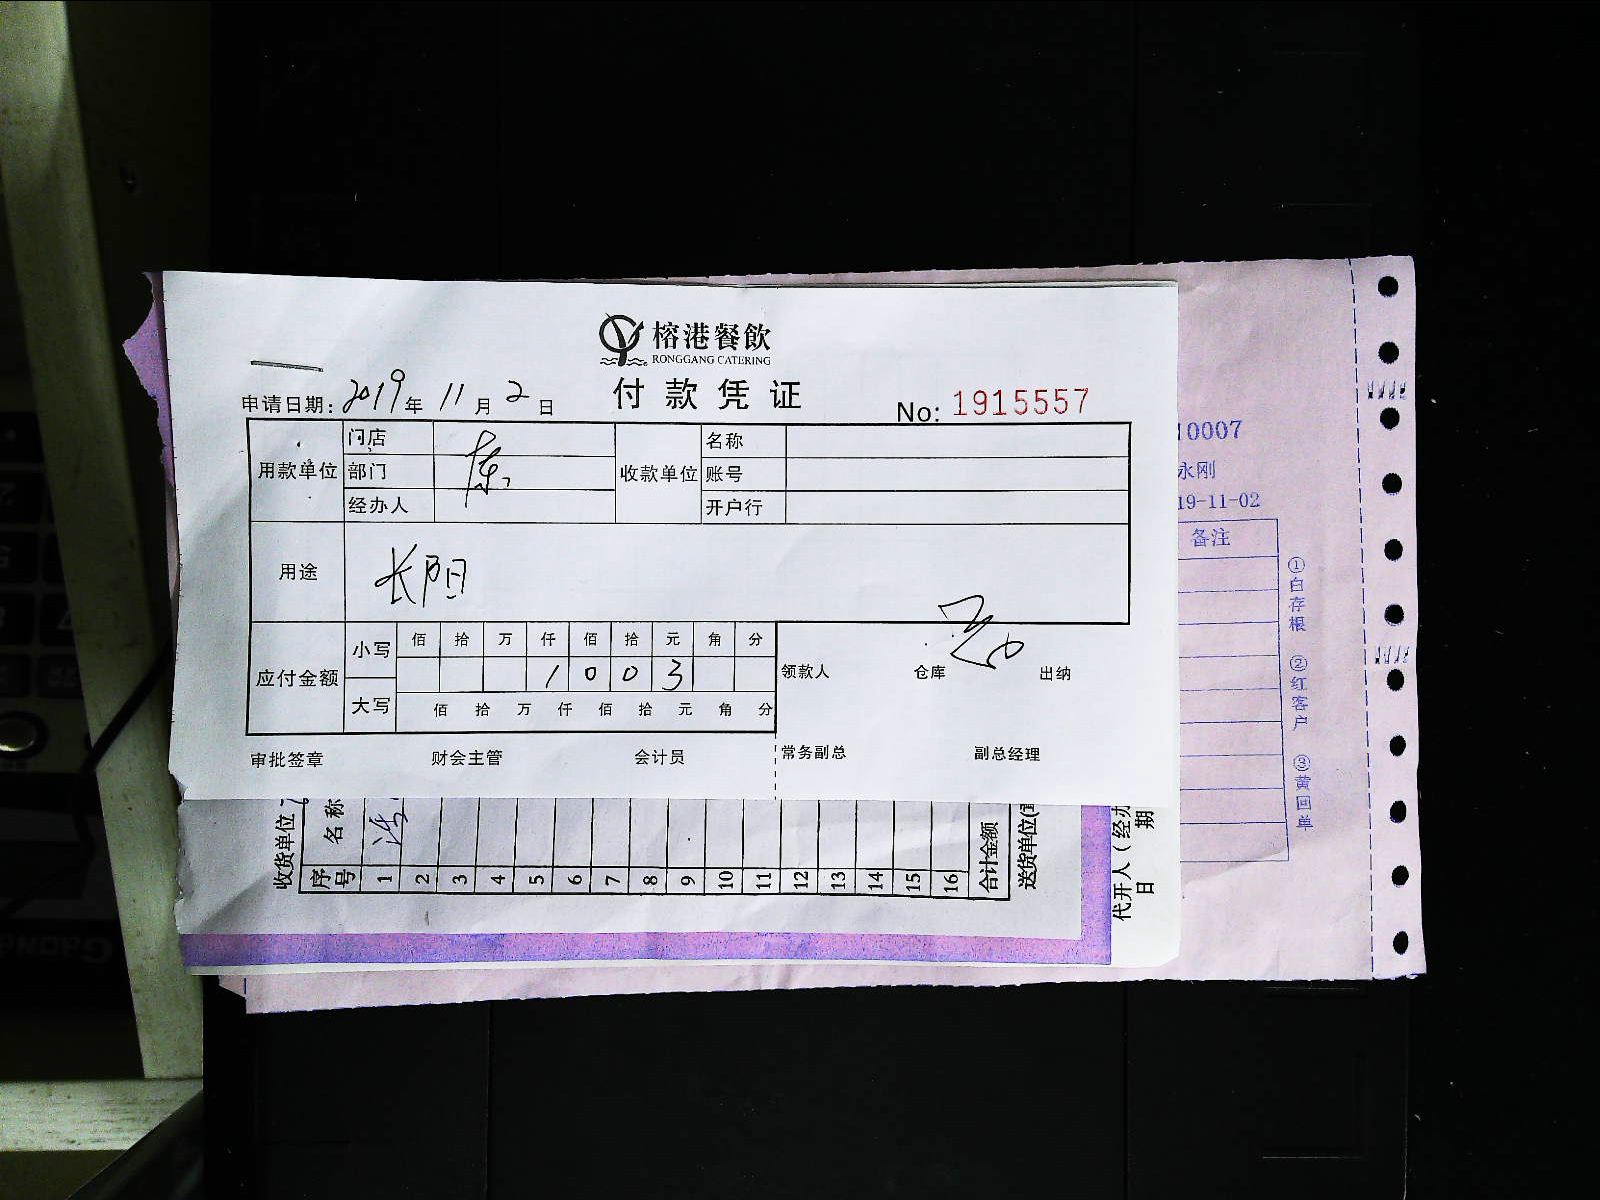 榕港餐飲
RONGGANG CATERING
付款凭证
申请日期: 2019年 11月 2日
No: 1915557
用款单位 门店 收款单位 名称
部门 账号
经办人 开户行
用途 长阳
应付金额 小写 佰 拾 万 仟 佰 拾 元 角 分
1 0 0 3
大写 佰 拾 万 仟 佰 拾 元 角 分
领款人 仓库 出纳
审批签章 财会主管 会计员 常务副总 副总经理
收货单位
序号 名称
1
2
3
4
5
6
7
8
9
10
11
12
13
14
15
16
合计金额
送货单位
代开人(经办
日期
10007
永刚
19-11-02
备注
①白存根 ②红客户 ③黄回单